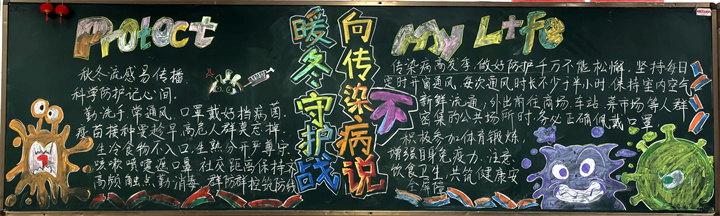 Protect
My Life
暖冬守护战
向传染病说不
秋冬流感易传播
科学防护记心间.
勤洗手常通风,口罩戴好挡病菌.
疫苗接种要趁早,高危人群莫忘掉.
生冷食物不入口,生熟分开严尊守.
咳嗽喷嚏遮口罩 社交距离保持
高频触点勤消毒 群防群控筑防线
传染病高发季,做好防护千万不能松懈.坚持每日
定时开窗通风,每次通风时长不少于半小时 保持室内空气
新鲜流通;外出前往商场.车站.菜市场等人群
密集的公共场所时,务必正确佩戴口罩
积极参加体育锻炼
增强自身免疫力.注意
饮食卫生,共筑健康安
全屏障